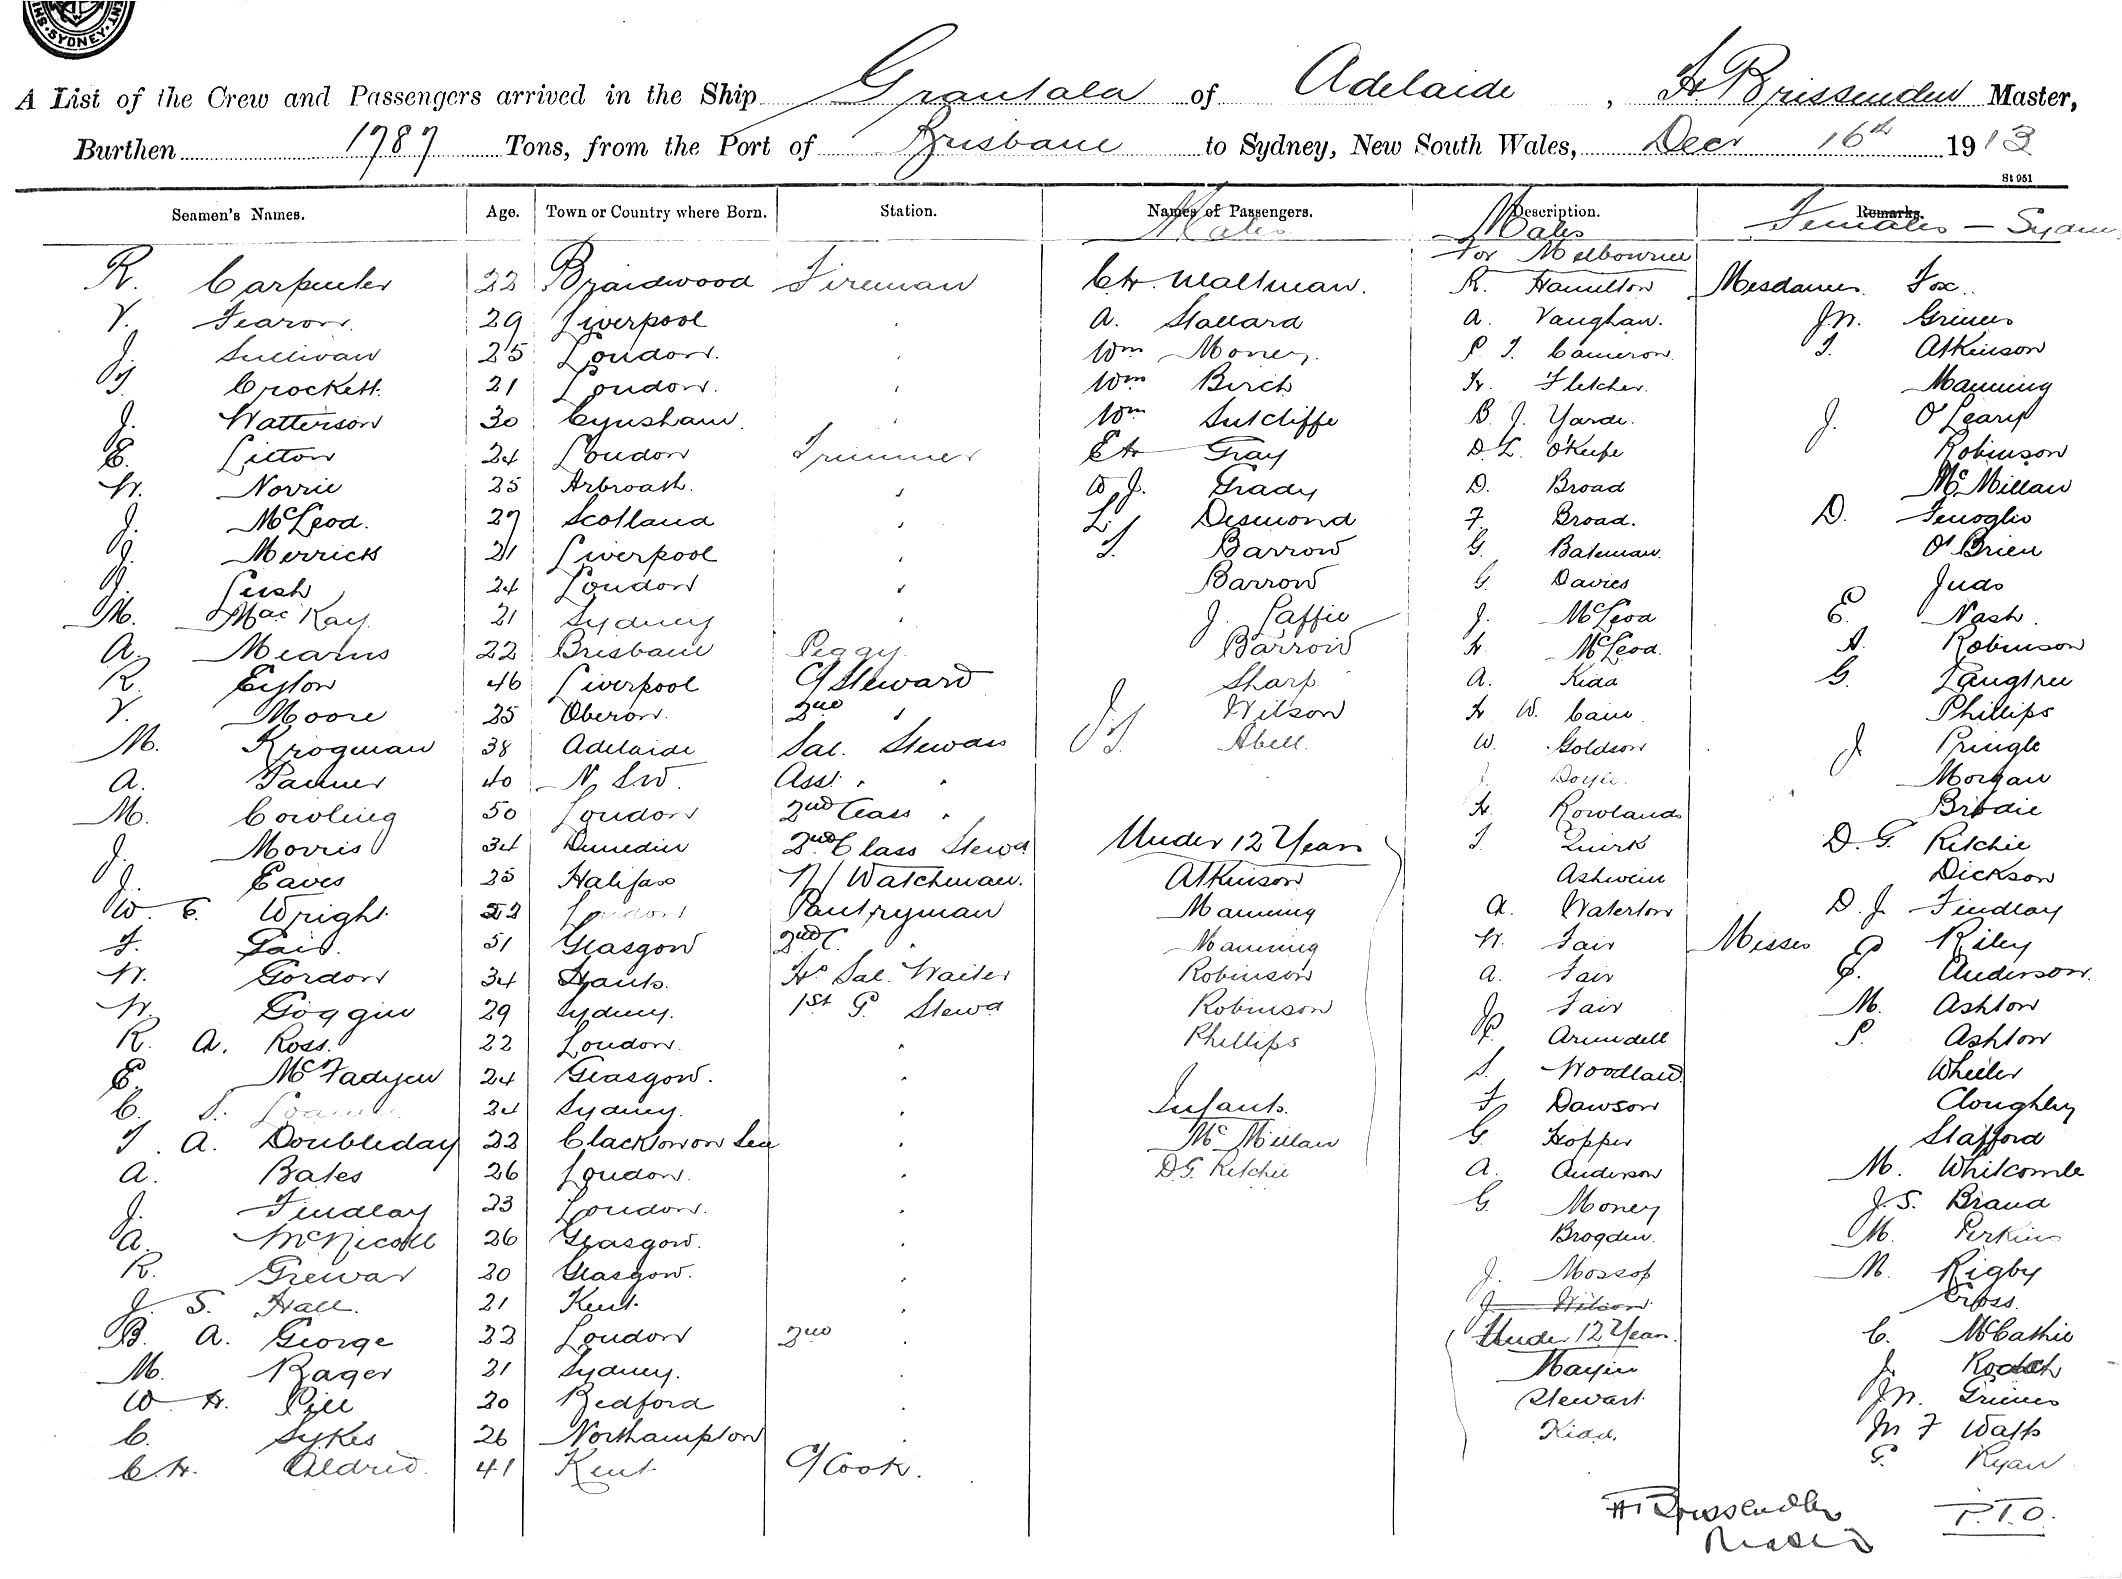 SYDNEY
A List of the Crew and Passengers arrived in the Ship Grantala of Adelaide, H Brissenden Master,
Burthen 1787 Tons, from the Port of Brisbane to Sydney, New South Wales, Decr 16th 1913
St 951
Seamen's Names. Age. Town or Country where Born. Station. Names of Passengers. Description. Remarks.
Males Males Females - Sydney
For Melbourne
R. Carpenter 22 Braidwood Fireman C H. Waltman. R. Hamilton Mesdames Fox.
V. Fearon. 29 Liverpool A. Stallard A. Vaughan. J. N. Grimes
J. Sullivan 25 London. Wm Money. P. J. Cameron. T. Atkinson
F. Crockett. 21 London. Wm Birch H. Fletcher. Manning
J. Watterson 30 Eynsham. Wm Sutcliffe B. J. Yarde. J. O'Leary
E. Litton 24 London Trimmer E H Gray D. L. O'Keefe Robinson
W. Norrie 25 Arbroath. W J. Grady D. Broad McMillan
J. McLeod. 27 Scotland L. Desmond F. Broad. D. Fenoglio
J. Merrick 21 Liverpool T. Barrow G. Bateman. O'Brien
J. Lush 24 London Barrow G. Davies Judo
M. MacKay. 21 Sydney J. Laffie J. McLeod E. Nash.
A. Mearns 22 Brisbane Peggy. Barrow H. McLeod. A. Robinson
R. Eyton 46 Liverpool C/Steward Sharp A. Kidd G. Langtree
V. Moore 25 Oberon. 2nd Wilson H. W. Cain Phillips
M. Krogman 38 Adelaide Sal. Stewdss J F. Abell. W. Goldson J. Pringle
A. Palmer 40 N. S W. Asst. J. Doyle. Morgan
M. Cowling 50 London 2nd Class H. Rowlands Brodie
J. Morris 34 Dunedin 2nd Class Stewd Under 12 Years T. Quirk D. G. Ritchie
J. Eaves 25 Halifax N/Watchman. Atkinson Ashwein Dickson
W. E. Wright. 22 London Pantryman Manning A. Waterton D. J. Findlay
F. Gair. 51 Glasgow 2nd C. Manning W. Fair Misses E. Riley
W. Gordon 34 Hants. Hd Sal. Waiter Robinson A. Fair E. Anderson.
W. Goggin 29 Sydney. 1st G. Stewd Robinson J. Fair M. Ashton
R. A. Ross. 22 London. Phillips P. Arundell P. Ashton
E. McFadyen 24 Glasgow. S. Woodland. Wheeler
C. S. 24 Sydney. Infants. F. Dawson Cloughley
T. A. Doubleday 22 Clackton on Sea McMillan G. Hopper Stafford
A. Bates 26 London. D. G. Ritchie A. Anderson M. Whitcombe
J. Findlay 23 London. G. Money J. S. Brand
A. McNicoll 26 Glasgow. Brogden. M. Perkins
R. Grewar 20 Glasgow. J. Mossop M. Rigby
J. S. Hall. 21 Kent. J. Wilson Cross.
B. A. George 22 London 2nd Under 12 Years. C. McCathie
M. Rager 21 Sydney. Mayin J.
W H. Pill 20 Bedford Stewart. J. N. Grimes
C. Sykes 26 Northampton Kidd. M F Watts
C H. Aldred. 41 Kent C/Cook. G. Ryan
H Brissenden
Master
P.T.O.